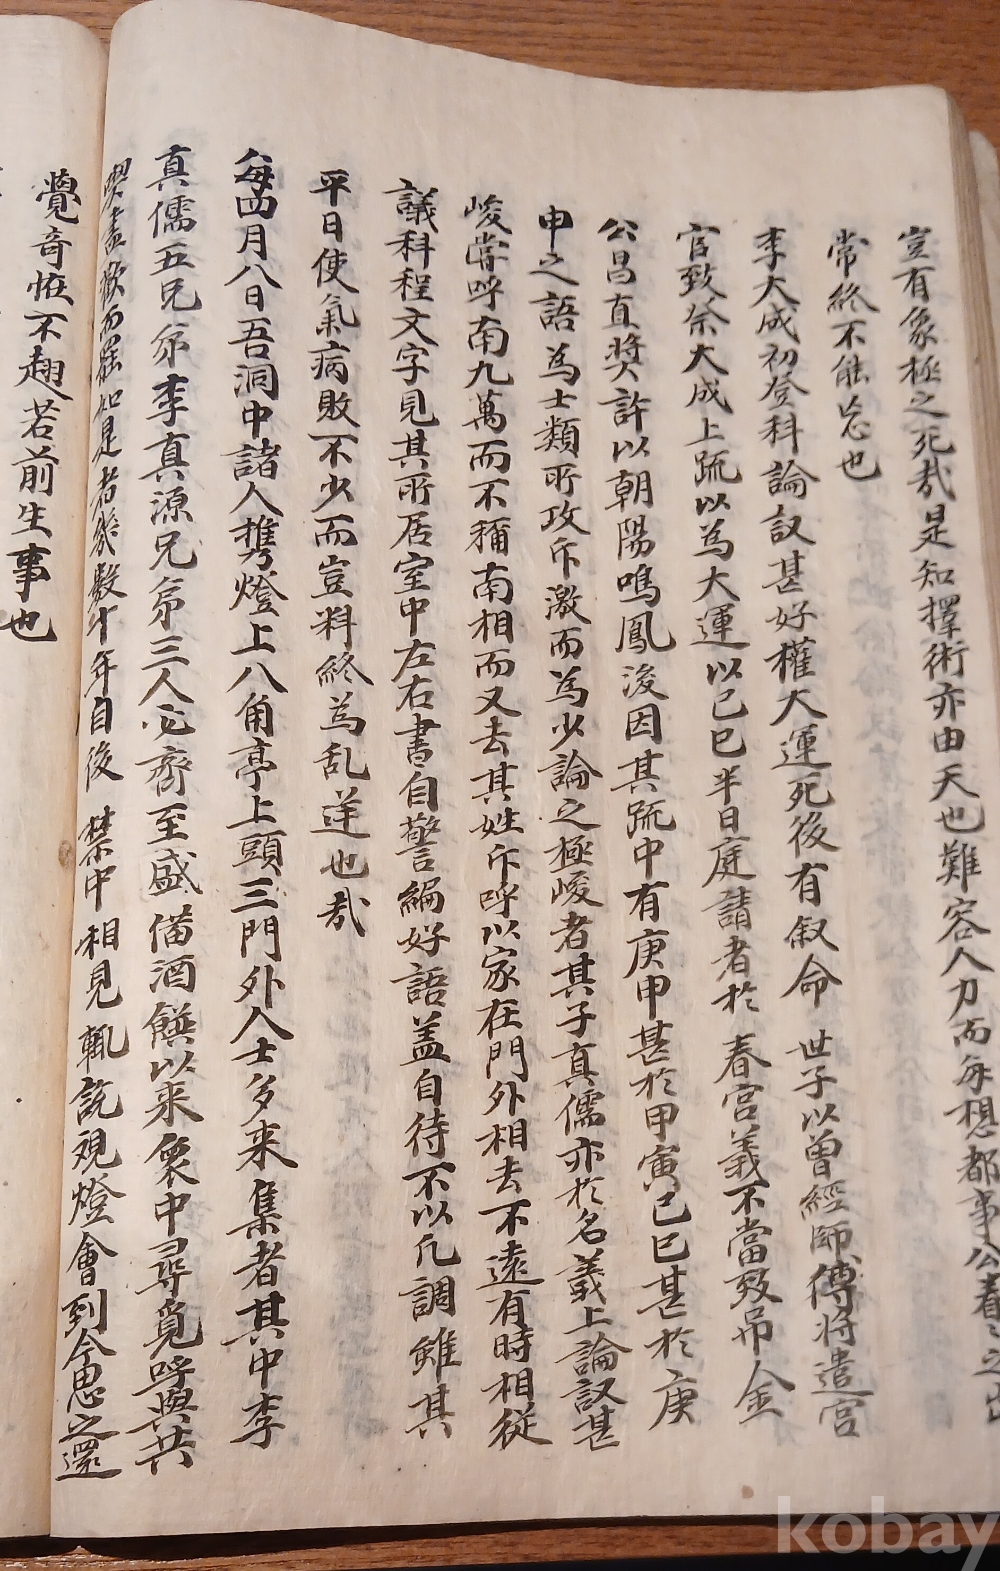 豈有象極之死哉是知擇術亦由天也難容人力而每想都事公眷眷之
常終不能忘也
李大成初登科論議甚好權大運死後有叙命 世子以曾經師傅將遣宮
官致祭大成上疏以為大運以己巳半日庭請者於 春宮義不當致吊金
公昌直奬許以朝陽鳴鳳後因其疏中有庚申甚於甲寅己巳甚於庚
申之語為士類所攻斥激而為少論之極峻者其子真儒亦於名義上論議甚
峻嘗呼南九萬而不稱南相而又去其姓斥呼以家在門外相去不遠有時相從
議科程文字見其所居室中左右書自警編好語盖自待不以凡調雖其
平日使氣病敗不少而豈料終為乱逆也哉
每四月八日吾洞中諸人携燈上八角亭上頭三門外人士多来集者其中李
真儒五兄弟李真源兄弟三人必齊至盛備酒饌以来衆中尋覓呼與共
喫盡歡而罷如是者幾數十年自後 禁中相見輒說觀燈會到今思之還
覺奇恠不趐若前生事也
kobay